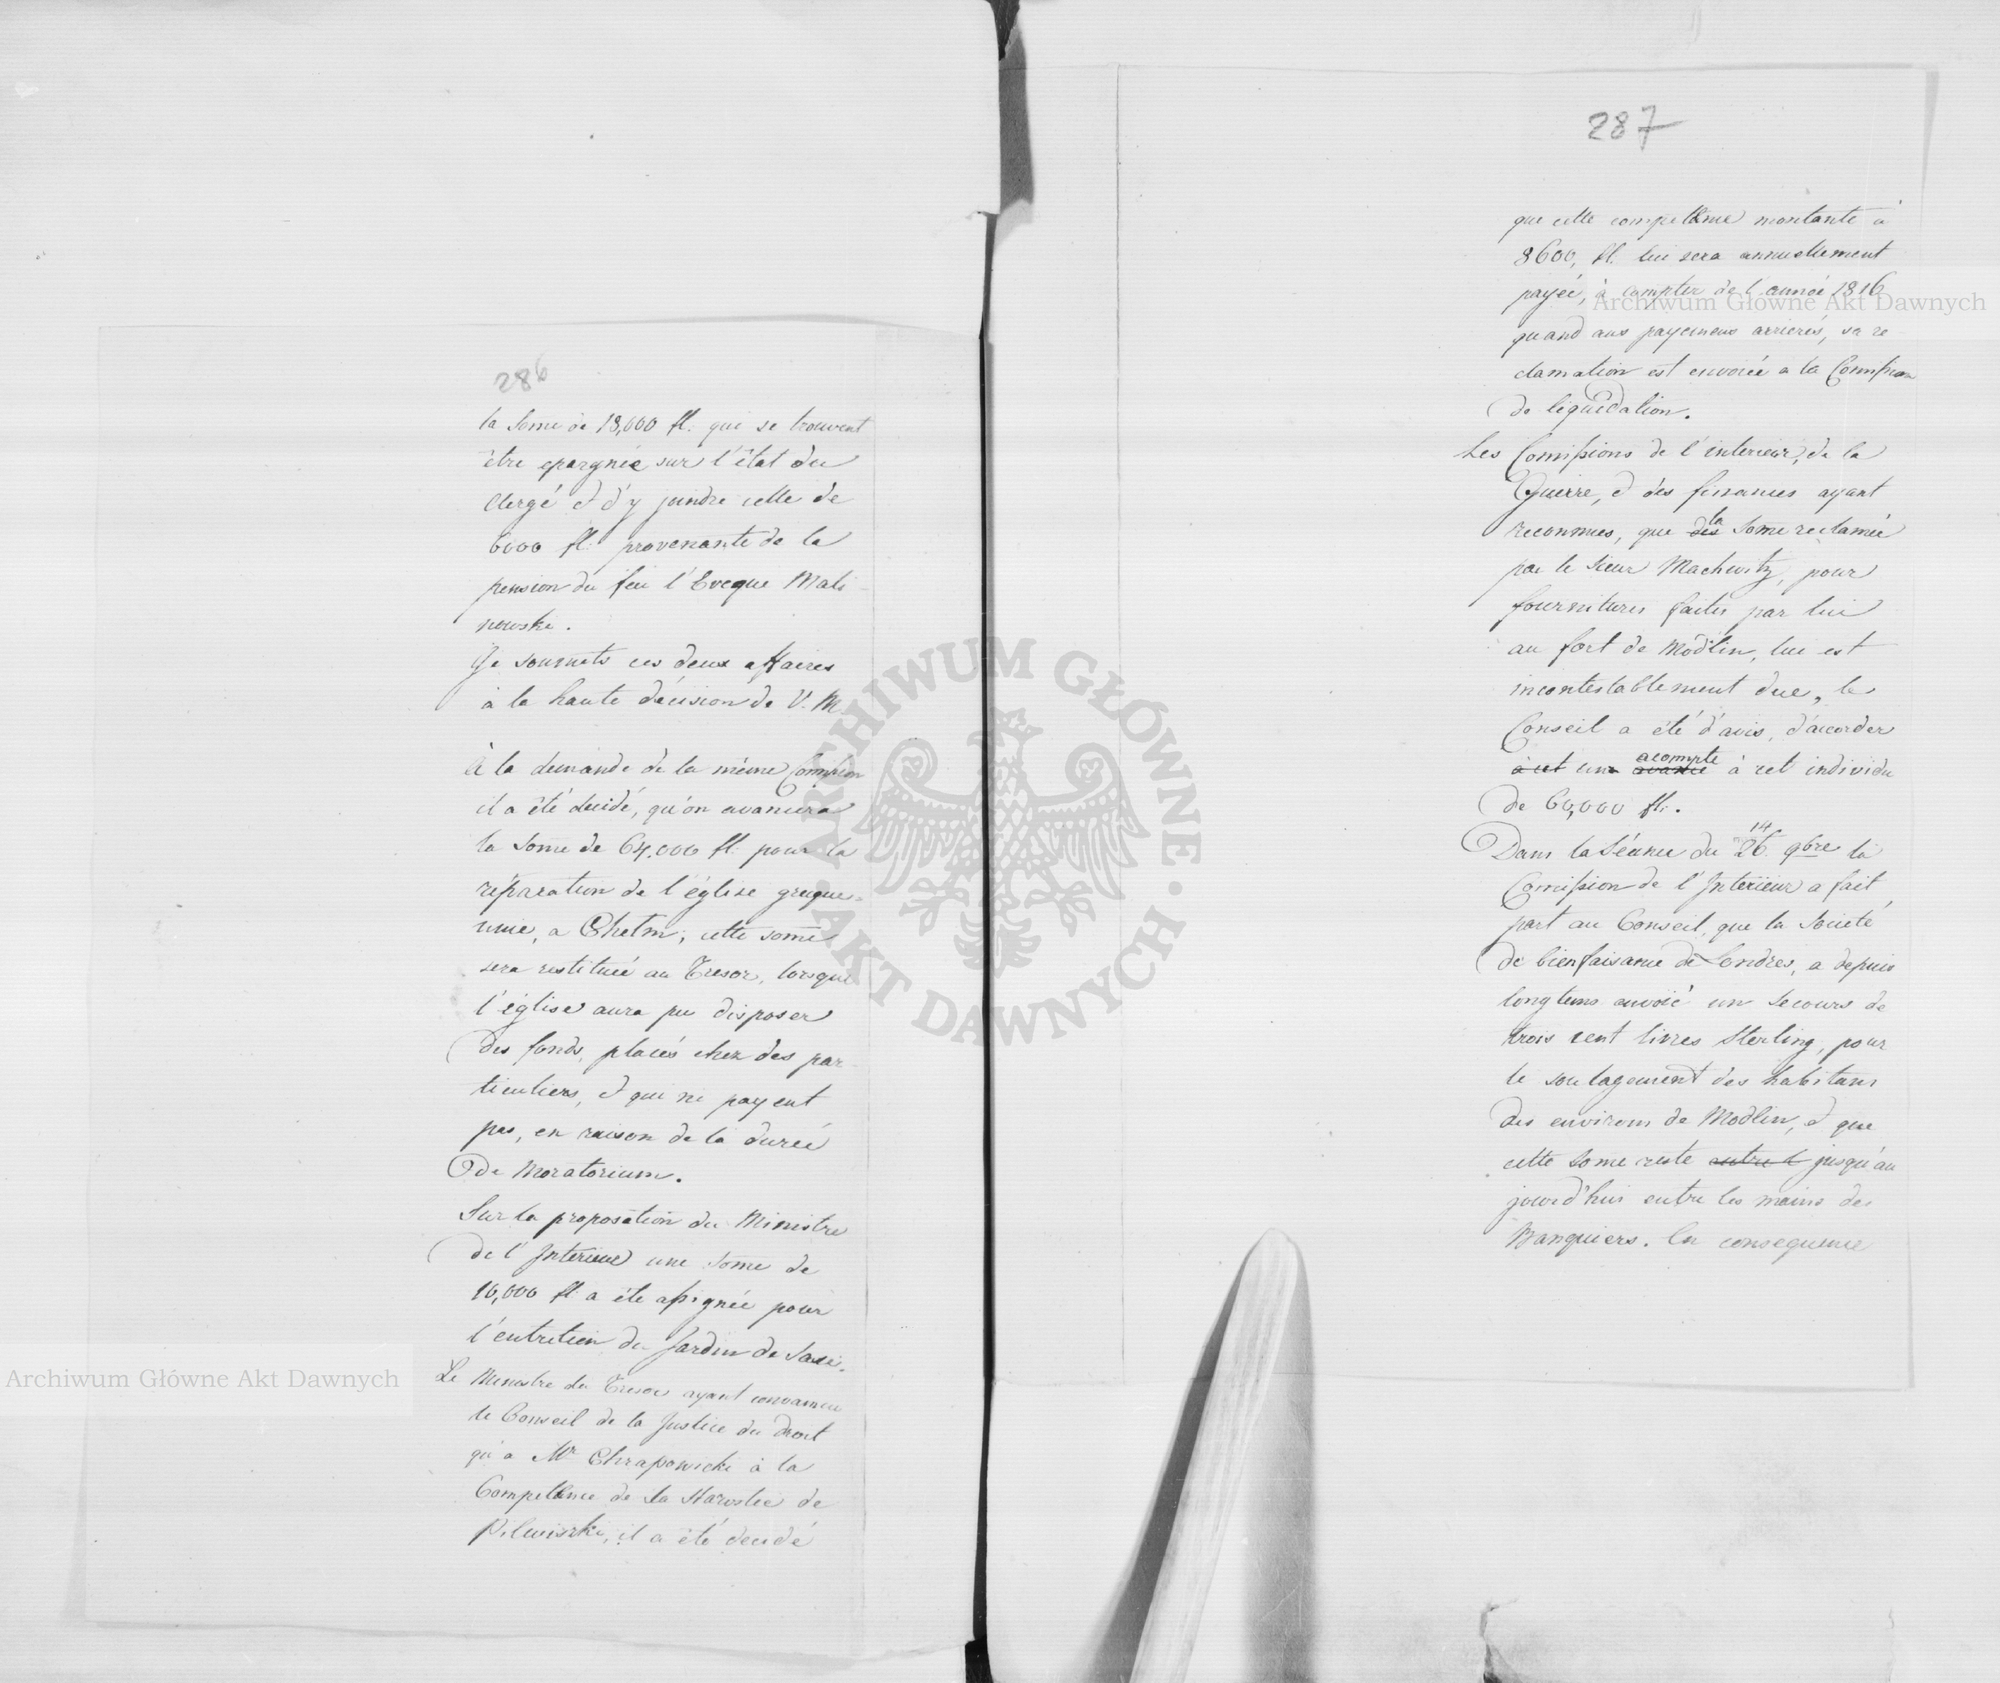 286
la Some de 18,000 fl. qui se trouvent
être epargnée sur l'êtat du
Clergé et d'y joindre celle de
6000 fl. provenante de la
pension du feu l'Eveque Mali-
nowski.
Je soumets ces deux affaires
à la haute décision de V. M.
À la demande de la même Comission
il a êté decidé, qu'on avancera
la Some de 64,000 fl. pour la
réparation de l'église greque-
unie, a Chelm; cette some
sera restituée au Tresor, lorsque
l'église aura pu disposer
des fonds, placés chez des par-
ticuliers, et qui ne payent
pas, en raison de la durée
de Moratorium.
Sur la proposition du Ministre
de l'Interieur une Some de
10,000 fl. a été assignée pour
l'entretien du Jardin de Saxe.
Le Ministre du Tresor ayant convaincu
le Conseil de la Justice du droit
qu'a Mr Chrapowicki à la
Competence de la Starostie de
Pilwiszki, il a êté decidé
287
que cette competence montante à
8600, fl. lui sera annuellement
payée, à compter de l'année 1816
quand aux payemens arrierés, sa re-
clamation est envoiée a la Comission
de liquidation.
Les Comissions de l'interieur, de la
Guerre, et des finances ayant
reconnues, que des la Some reclamée
par le Sieur Machwitz, pour
fournitures faites par lui
au fort de Modlin, lui est
incontestablement due, le
Conseil a été d'avis, d'accorder
à cet un avance acompte à cet individu
de 60,000 fl.
Dans la Séance du 14/26 9bre la
Comission de l'Interieur a fait
part au Conseil, que la Societé
de bienfaisance de Londres, a depuis
longtems envoïé un Secours de
trois cent livres Sterling, pour
le soulagement des habitans
des environs de Modlin, et que
cette Some reste entre l jusqu'au
jourd'hui entre les mains des
Banquiers. En consequence
Archiwum Główne Akt Dawnych
Archiwum Główne Akt Dawnych
ARCHIWUM GŁÓWNE AKT DAWNYCH